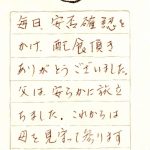 毎日、安否確認を
かけ、配食頂き
ありがとうございました。
父は、安らかに旅立
ちました。これからは
母を見守って参ります